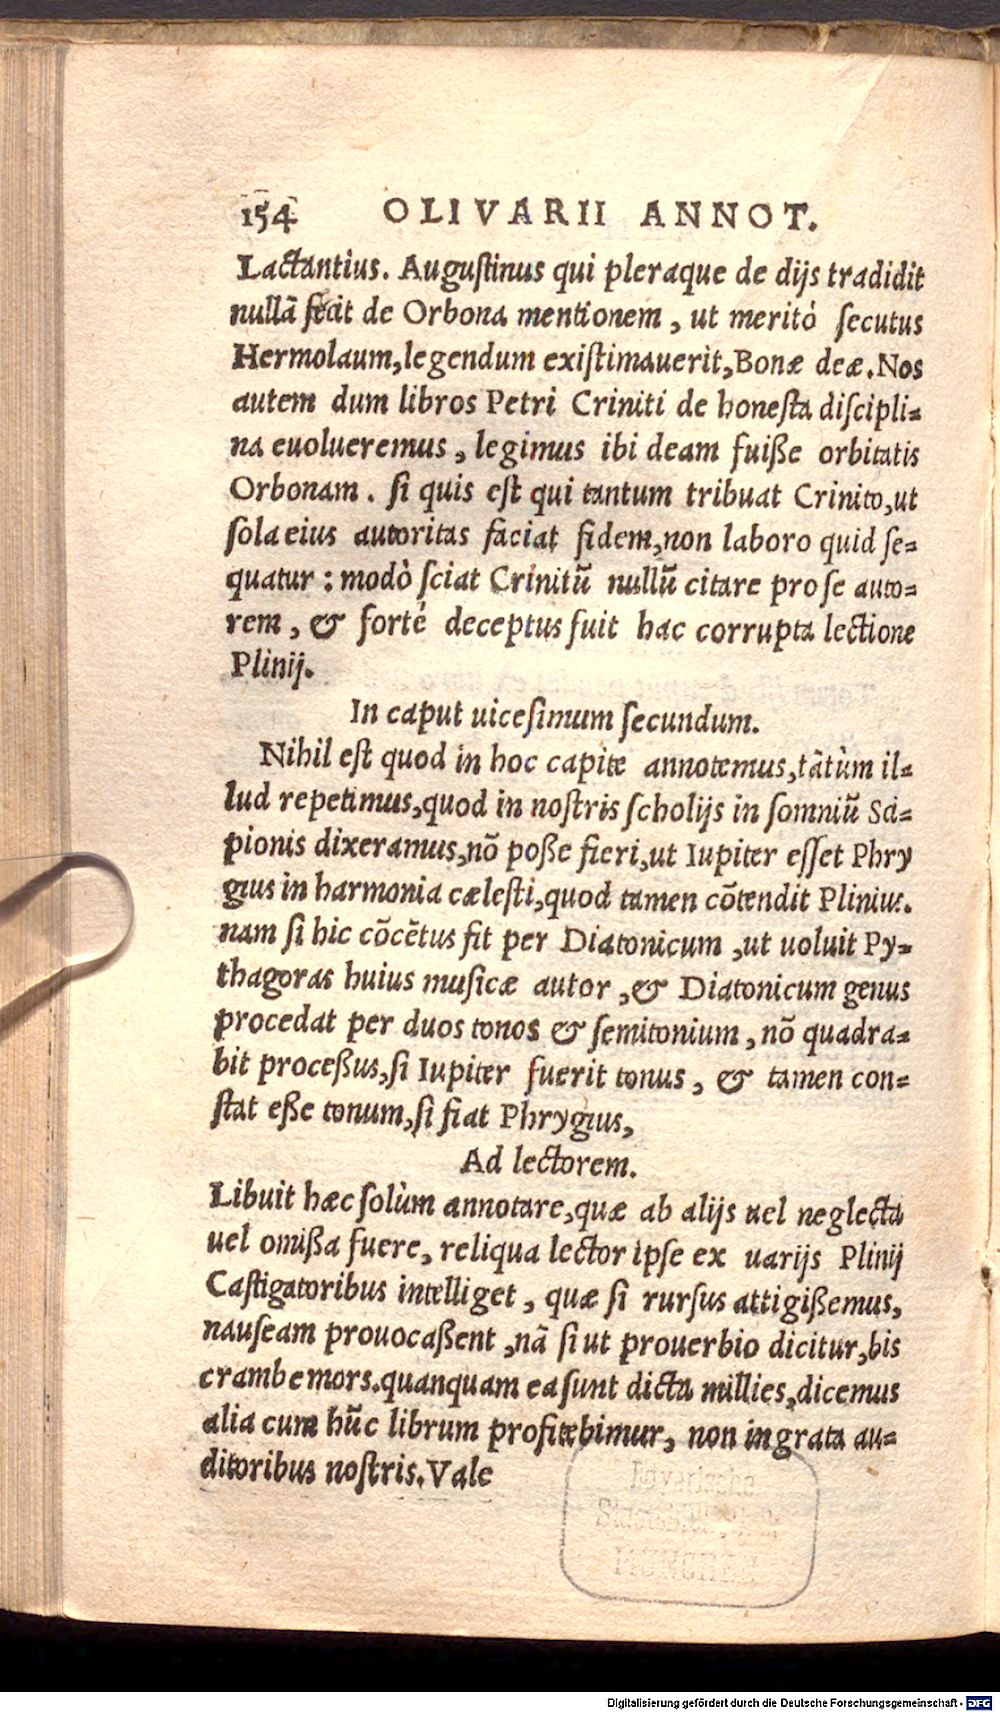 154 OLIVARII ANNOT.
Lactantius. Augustinus qui pleraque de dijs tradidit
nullã fecit de Orbona mentionem, ut meritò secutus
Hermolaum, legendum existimauerit, Bonæ deæ. Nos
autem dum libros Petri Criniti de honesta discipli-
na euolueremus, legimus ibi deam fuiße orbitatis
Orbonam. si quis est qui tantum tribuat Crinito, ut
sola eius autoritas faciat fidem, non laboro quid se-
quatur: modò sciat Crinitũ nullũ citare pro se auto-
rem, & forté deceptus fuit hac corrupta lectione
Plinij.
In caput uicesimum secundum.
Nihil est quod in hoc capite annotemus, tãtùm il-
lud repetimus, quod in nostris scholijs in somniũ Sci-
pionis dixeramus, nõ poße fieri, ut Iupiter esset Phry
gius in harmonia cælesti, quod tamen cõtendit Plinius.
nam si hic cõcẽtus fit per Diatonicum, ut uoluit Py-
thagoras huius musicæ autor, & Diatonicum genus
procedat per duos tonos & semitonium, nõ quadra-
bit proceßus, si Iupiter fuerit tonus, & tamen con-
stat eße tonum, si fiat Phrygius,
Ad lectorem.
Libuit hæc solùm annotare, quæ ab alijs uel neglecta
uel omißa fuere, reliqua lector ipse ex uarijs Plinij
Castigatoribus intelliget, quæ si rursus attigißemus,
nauseam prouocaßent, nã si ut prouerbio dicitur, bis
crambe mors. quanquam ea sunt dicta millies, dicemus
alia cum hũc librum profitebimur, non ingrata au-
ditoribus nostris. Vale
Bayerische
Staatsbibliothek
MÜNCHEN
Digitalisierung gefördert durch die Deutsche Forschungsgemeinschaft - DFG